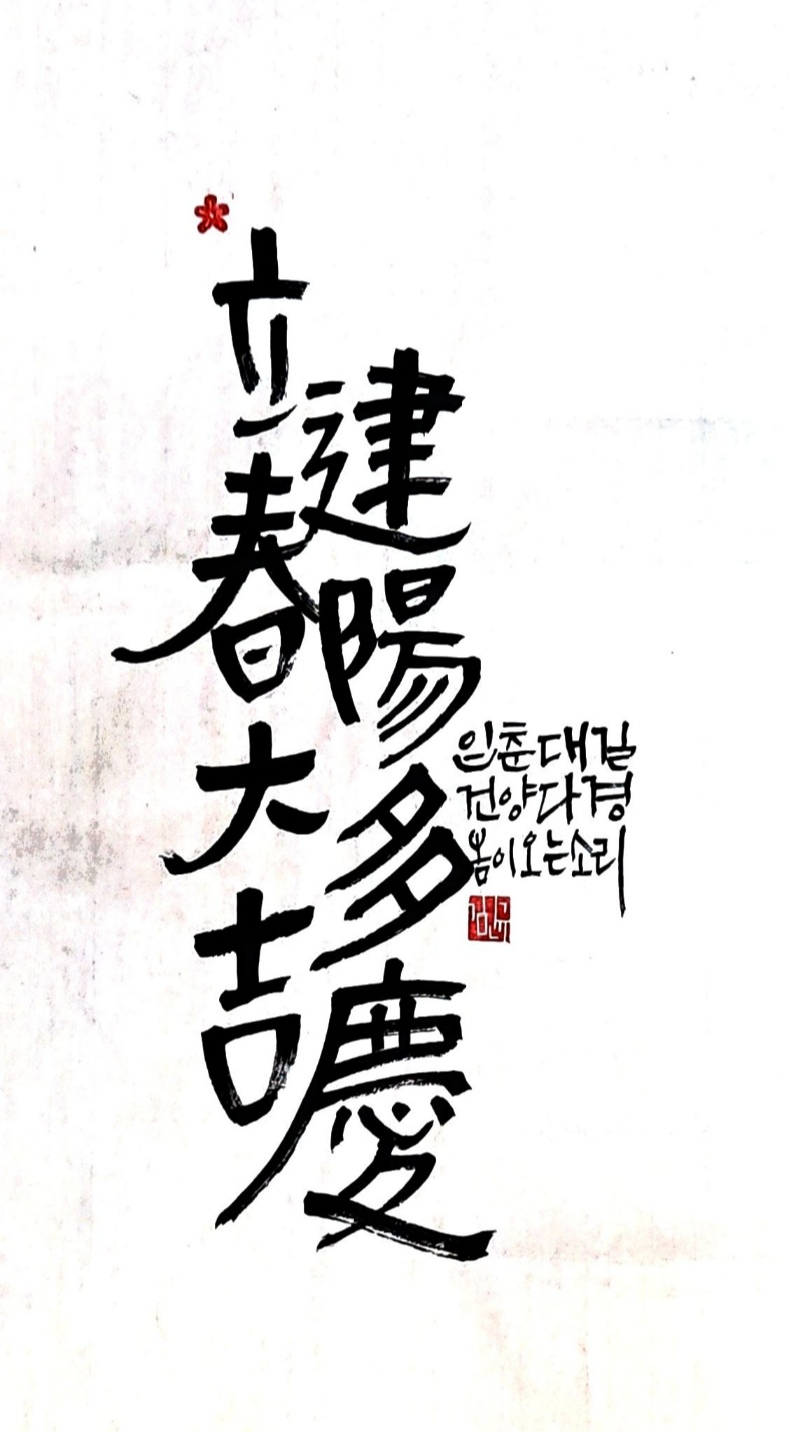 立春大吉
建陽多慶
입춘대길
건양다경
봄이오는소리